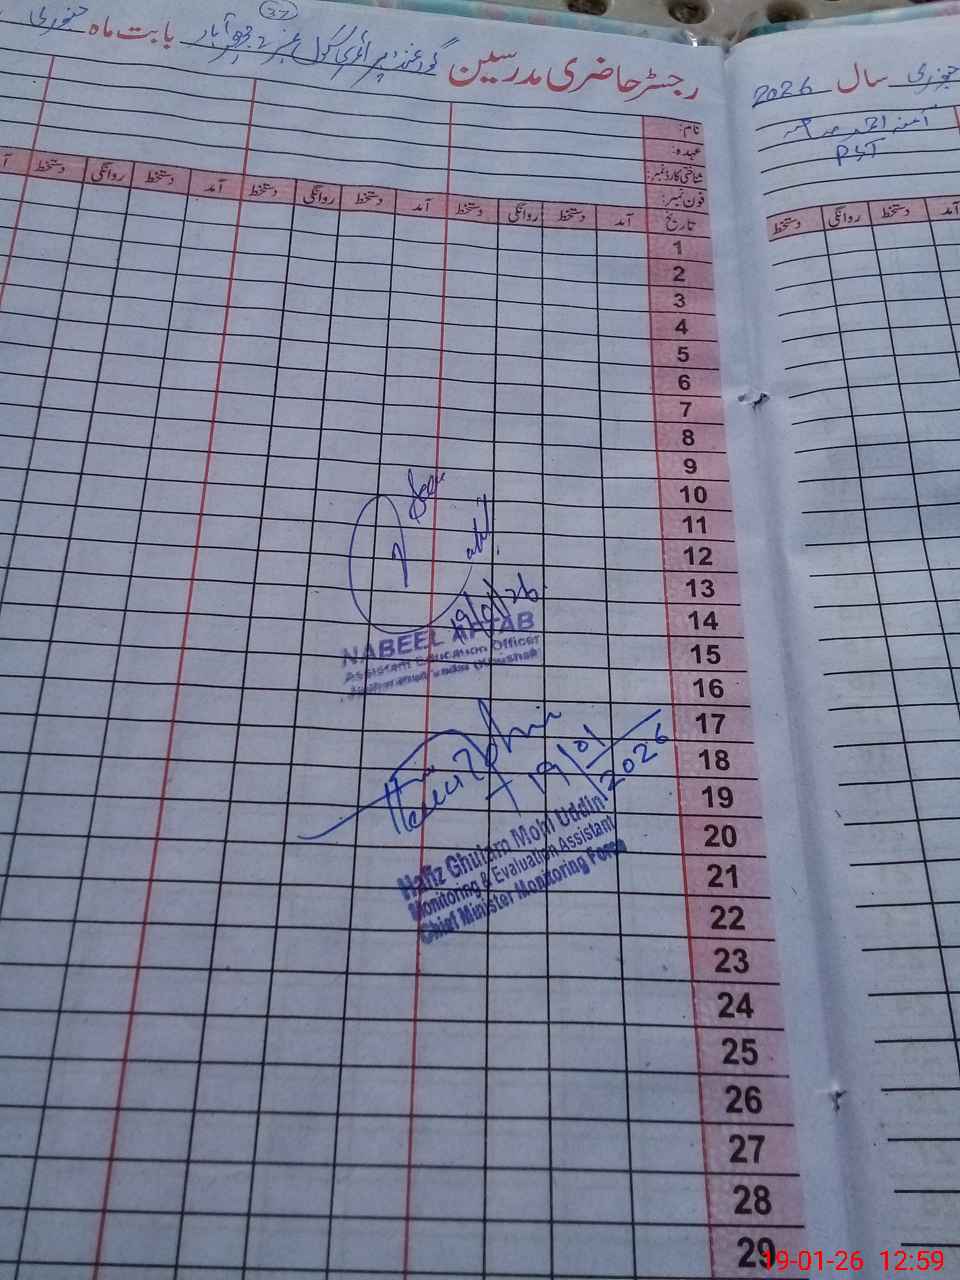 37
رجسٹر حاضری مدرسین گورنمنٹ پرائمری سکول نمبر 2 بابت ماہ جنوری
جنوری سال 2026
PST
نام:
عہدہ:
شناختی کارڈ نمبر:
فون نمبر:
تاریخ آمد دستخط روانگی دستخط آمد دستخط روانگی دستخط آمد دستخط روانگی دستخط
آمد دستخط روانگی دستخط
1
2
3
4
5
6
7
8
9
10
11
12
13
14
15
16
17
18
19
20
21
22
23
24
25
26
27
28
29
19/01/26
NABEEL AFTAB
Assistant Education Officer
19/01/2026
Hafiz Ghulam Mohi Uddin
Monitoring & Evaluation Assistant
Chief Minister Monitoring Force
19-01-26 12:59